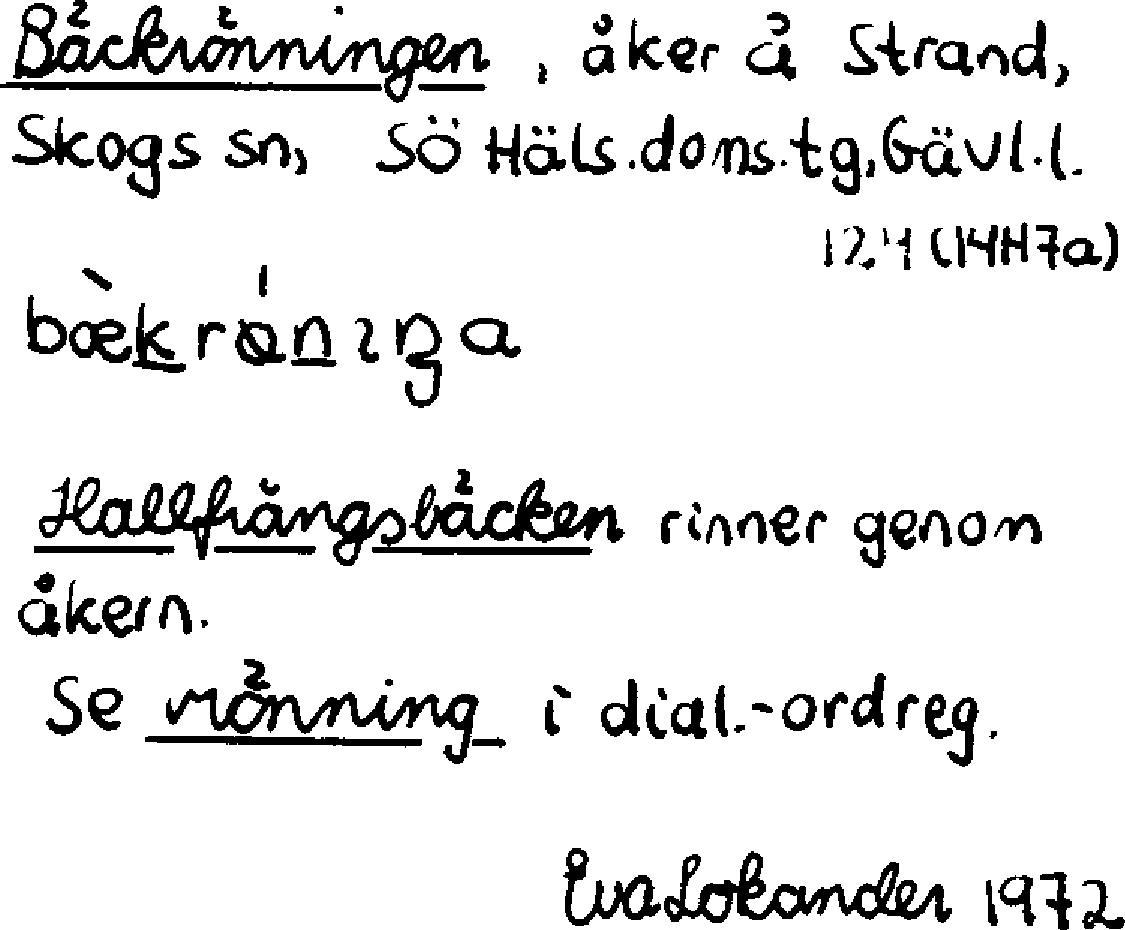 Bäckrönningen, åker å Strand,
Skogs sn, Sö Häls.doms.tg, Gävl.l.
12.4 (14H7a)
bæ̀krǿnıŋa
Hallfrängsbäcken rinner genom
åkern.
Se rönning i dial.-ordreg.
Eva Lokander 1972